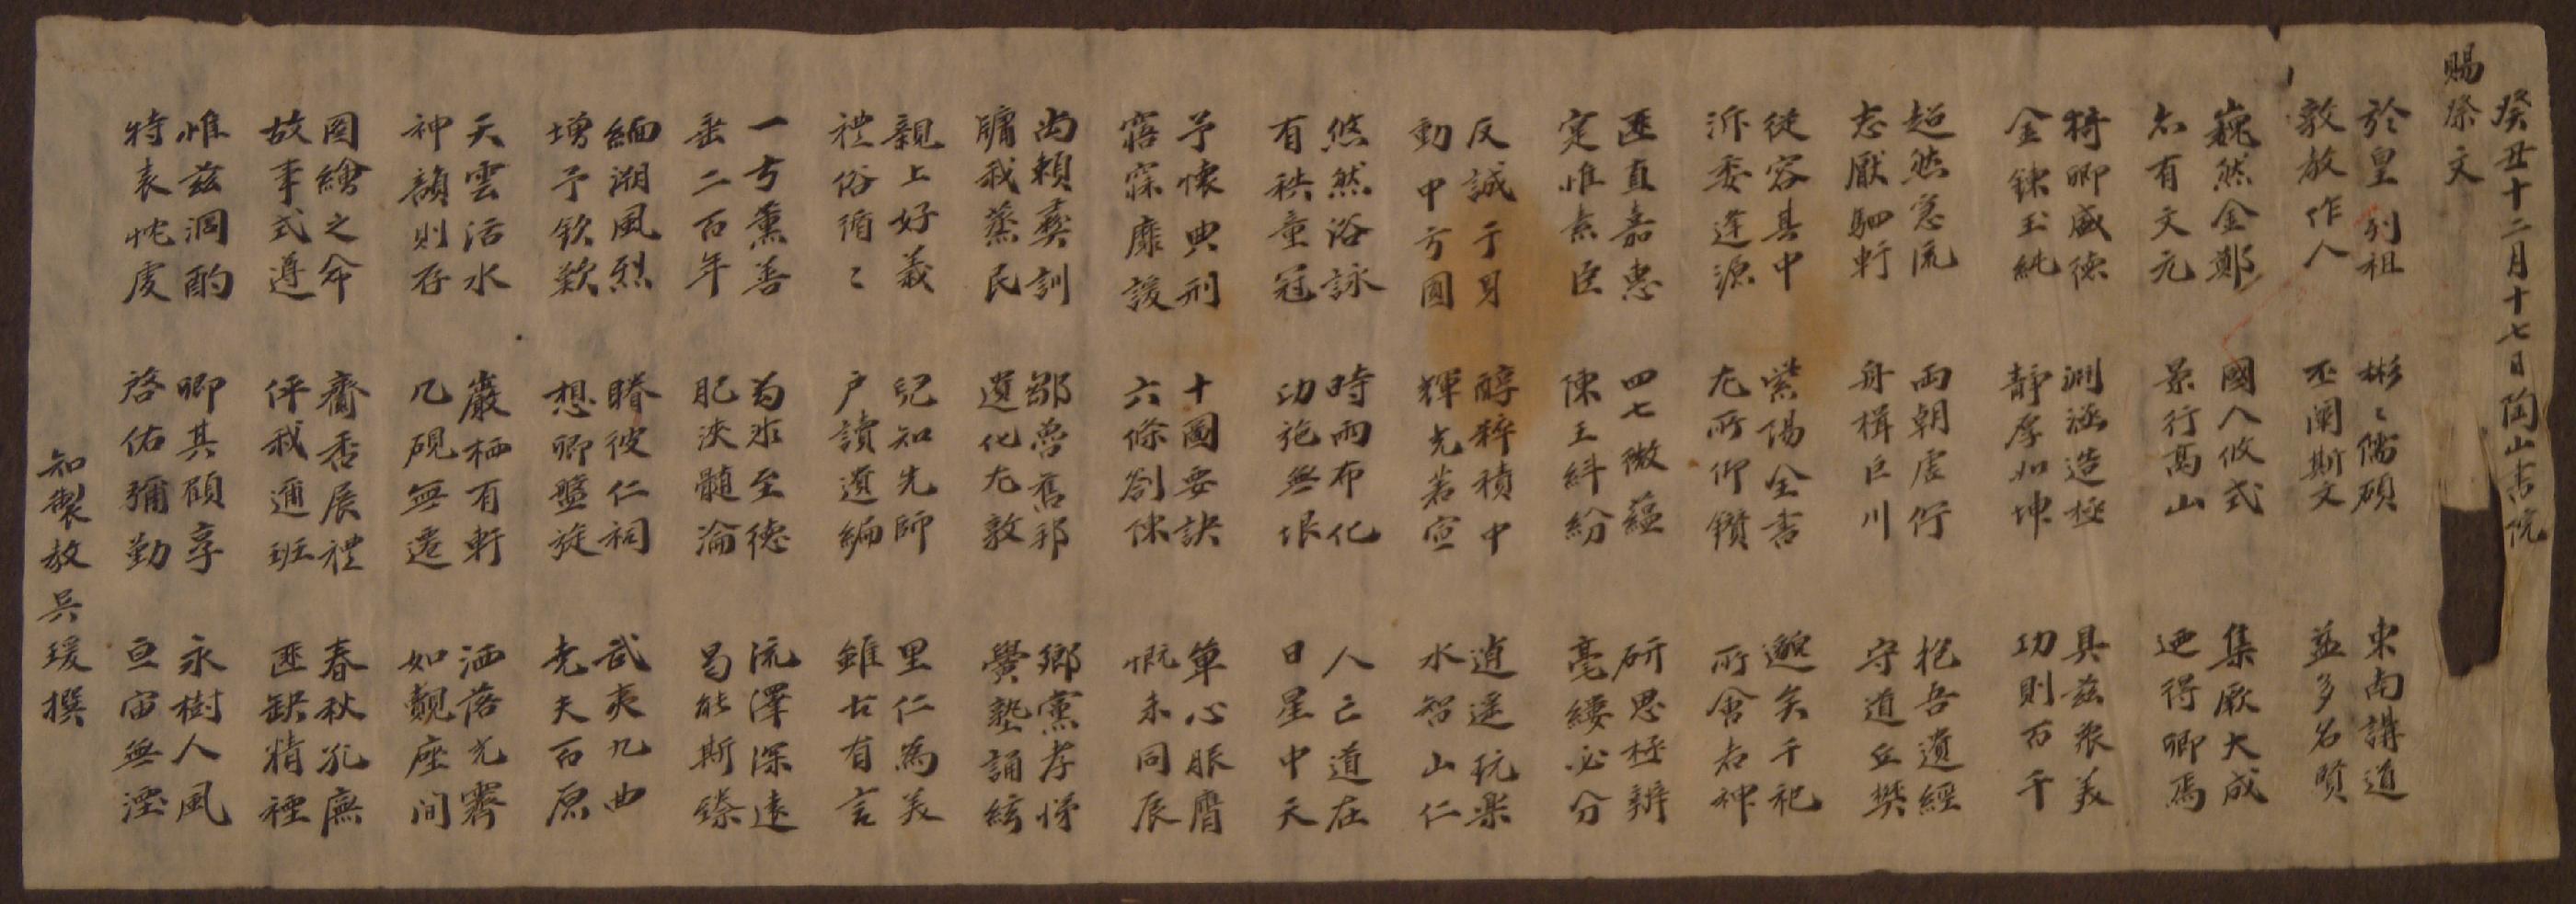 癸丑十二月十七日陶山書院
賜祭文
於皇列祖
敦教作人
彬〻儒碩
丕闡斯文
東南講道
益多名賢
巍然金鄭
亦有文元
國人攸式
景行高山
集厥大成
迺得卿焉
猗卿盛德
金鍊玉純
淵涵造極
靜厚如坤
具茲衆美
功則百千
超然急流
志厭駟軒
兩朝虛佇
舟楫巨川
抱吾遺經
守道丘樊
從容其中
泝委逢源
紫陽全書
尤所仰鑽
邈矣千祀
所會者神
匪直嘉惠
寔惟素臣
四七微蘊
陳王糾紛
研思極辨
毫縷必分
反誠于身
動中方圓
醇粹積中
輝光著宣
逍遙玩樂
水智山仁
悠然浴詠
有秩童冠
時雨布化
功施無垠
人亡道在
日星中天
予懷典刑
寤寐靡諼
十圖要訣
六條劄陳
單心服膺
慨未同辰
尚賴彝訓
牖我蒸民
鄒魯舊邦
遺化尤敦
鄉黨孝悌
黌塾誦絃
親上好義
禮俗循〻
兒知先師
戶讀遺編
里仁爲美
雖古有言
一方薰善
垂二百年
爲水至德
肌浹髓淪
流澤深遠
曷能斯臻
緬溯風烈
增予欽歎
睠彼仁祠
想卿盤旋
武夷九曲
堯夫百原
天雲活水
神韻則存
巖栖有軒
几硯無遷
洒落光霽
如覿座間
圖繪之命
故事式遵
齎香展禮
伻我邇班
春秋孔廡
匪缺精禋
惟茲泂酌
特表忱虔
卿其顧享
啓佑彌勤
永樹人風
亘宙無湮
知製教吳瑗撰